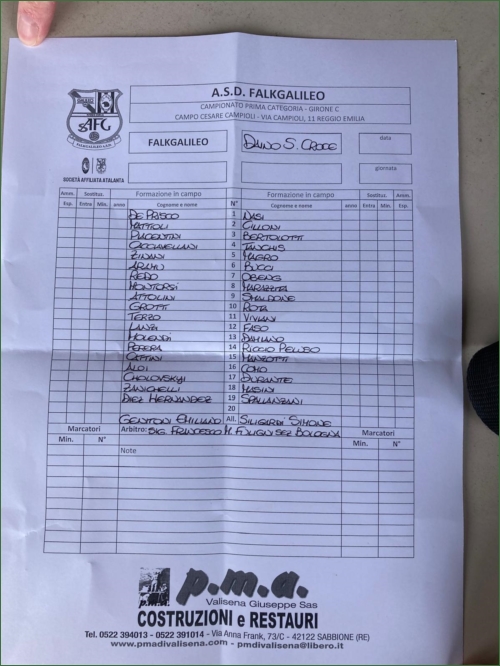 A.S.D. FALKGALILEO
CAMPIONATO PRIMA CATEGORIA - GIRONE C
CAMPO CESARE CAMPIOLI - VIA CAMPIOLI, 11 REGGIO EMILIA
AFG
FALKGALILEO DAINO S. CROCE data
giornata
SOCIETÀ AFFILIATA ATALANTA
Amm. Sostitus. Formazione in campo Formazione in campo Sostitus. Amm.
Esp. Entra Min. anno Cognome e nome N° Cognome e nome anno Entra Min. Esp.
DE PRISCO 1 NASI
MATTOLI 2 CILLONI
PIACENTINI 3 BERTOLOTTI
CACCIAVELLANI 4 TANCHIS
ZINANI 5 MAGRO
6 BUCCI
REDO 7 OBENG
MONTORSI 8 MARAZZITA
ATTOLINI 9 SMALDONE
GROTTI 10 ROTA
TERZO 11 VIVIANI
LANZI 12 FASO
13 DAMIANO
PERERA 14 RICCIO PELUSO
15 MANZOTTI
ALOI 16 COMO
CHOLOVSKYI 17 DURANTE
ZANICHELLI 18 MASINI
DIEZ HERNANDEZ 19 SPALANZANI
20
GENITONI EMILIANO All. SILIGARDI SIMONE
Marcatori Arbitro: SIG. FRANCESCO M. FULIGNI SEZ BOLOGNA Marcatori
Min. N° Note Min. N°
p.m.a. p.m.a.
Valisena Giuseppe Sas
COSTRUZIONI e RESTAURI
Tel. 0522 394013 - 0522 391014 - Via Anna Frank, 73/C - 42122 SABBIONE (RE)
www.pmadivalisena.com - pmdivalisena@libero.it